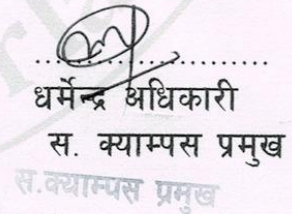 ........................
धर्मेन्द्र अधिकारी
स. क्याम्पस प्रमुख
स.क्याम्पस प्रमुख